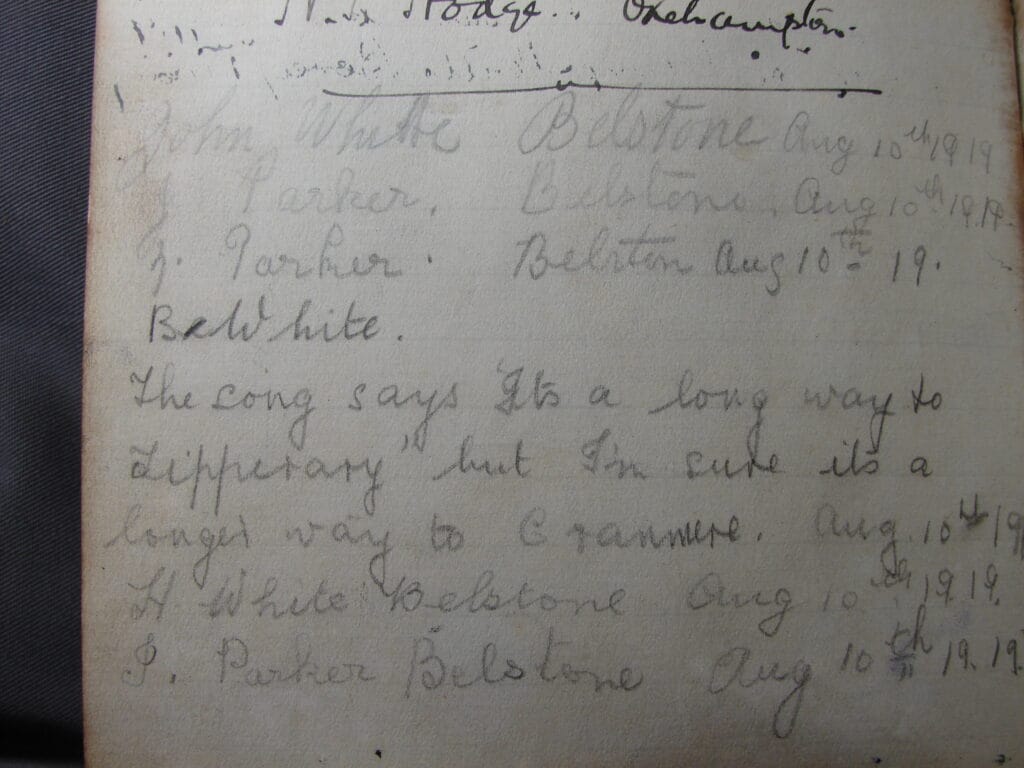 Hodge.. Okehampton.
John White Belstone Aug 10th 1919
J Parker. Belstone. Aug 10th 19.19.
J. Parker. Belston Aug 10th 19.
B White.
The song says "Its a long way to
Tipperary" but I'm sure its a
longer way to Cranmere. Aug. 10th 19
H White Belstone Aug 10th 19.19.
P. Parker Belstone Aug 10th 19.19.